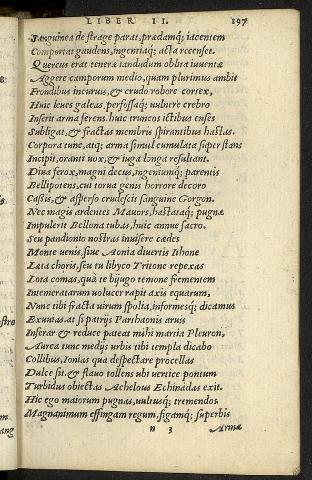 LIBER II. 197
Sanguinea de strage parat, prædamq; iacentem
Comportat gaudens, ingentiaq; acta recenset.
Quercus erat teneræ iandudum oblita iuuentæ
Aggere camporum medio, quam plurimus ambit
Frondibus incuruis, & crudo robore cortex,
Huic leues galeas, perfossaq; uulnere crebro
Inserit arma ferens. huic truncos ictibus enses
Subligat, & fractas membris spirantibus hastas.
Corpora tunc, atq; arma simul cumulata superstans
Incipit, oranti nox, & iuga longa resultant.
Diua ferox, magni decus, ingeniumq; parentis
Bellipotens, cui torua genis horrore decoro
Cassis, & asperso crudescit sanguine Gorgon.
Nec magis ardentes Mauors, hastataq; pugnæ
Impulerit Bellona tubas, huic annue sacro.
Seu pandionio nostras inuisere cædes
Monte uenis, siue Aonia diuertis Ithone
Læta choris, seu tu libyco Tritone repexas
Lota comas, quà te biiugo temone frementem
Intemeratarum uolucer rapit axis equarum,
Nunc tibi fracta uirum spolia, informesq; dicamus
Exuuias. at si patrijs Parthaonis aruis
Inserar, & reduce pateat mihi martia Pleuron,
Aurea tunc medijs urbis tibi templa dicabo
Collibus, Ionias qua despectare procellas
Dulce sit. & flauo tollens ubi uertice pontum
Turbidus obiectas Achelous Echinadas exit.
Hic ego maiorum pugnas, uultusq; tremendos
Magnanimum effingam regum, figamq; superbis
n 3 Arma